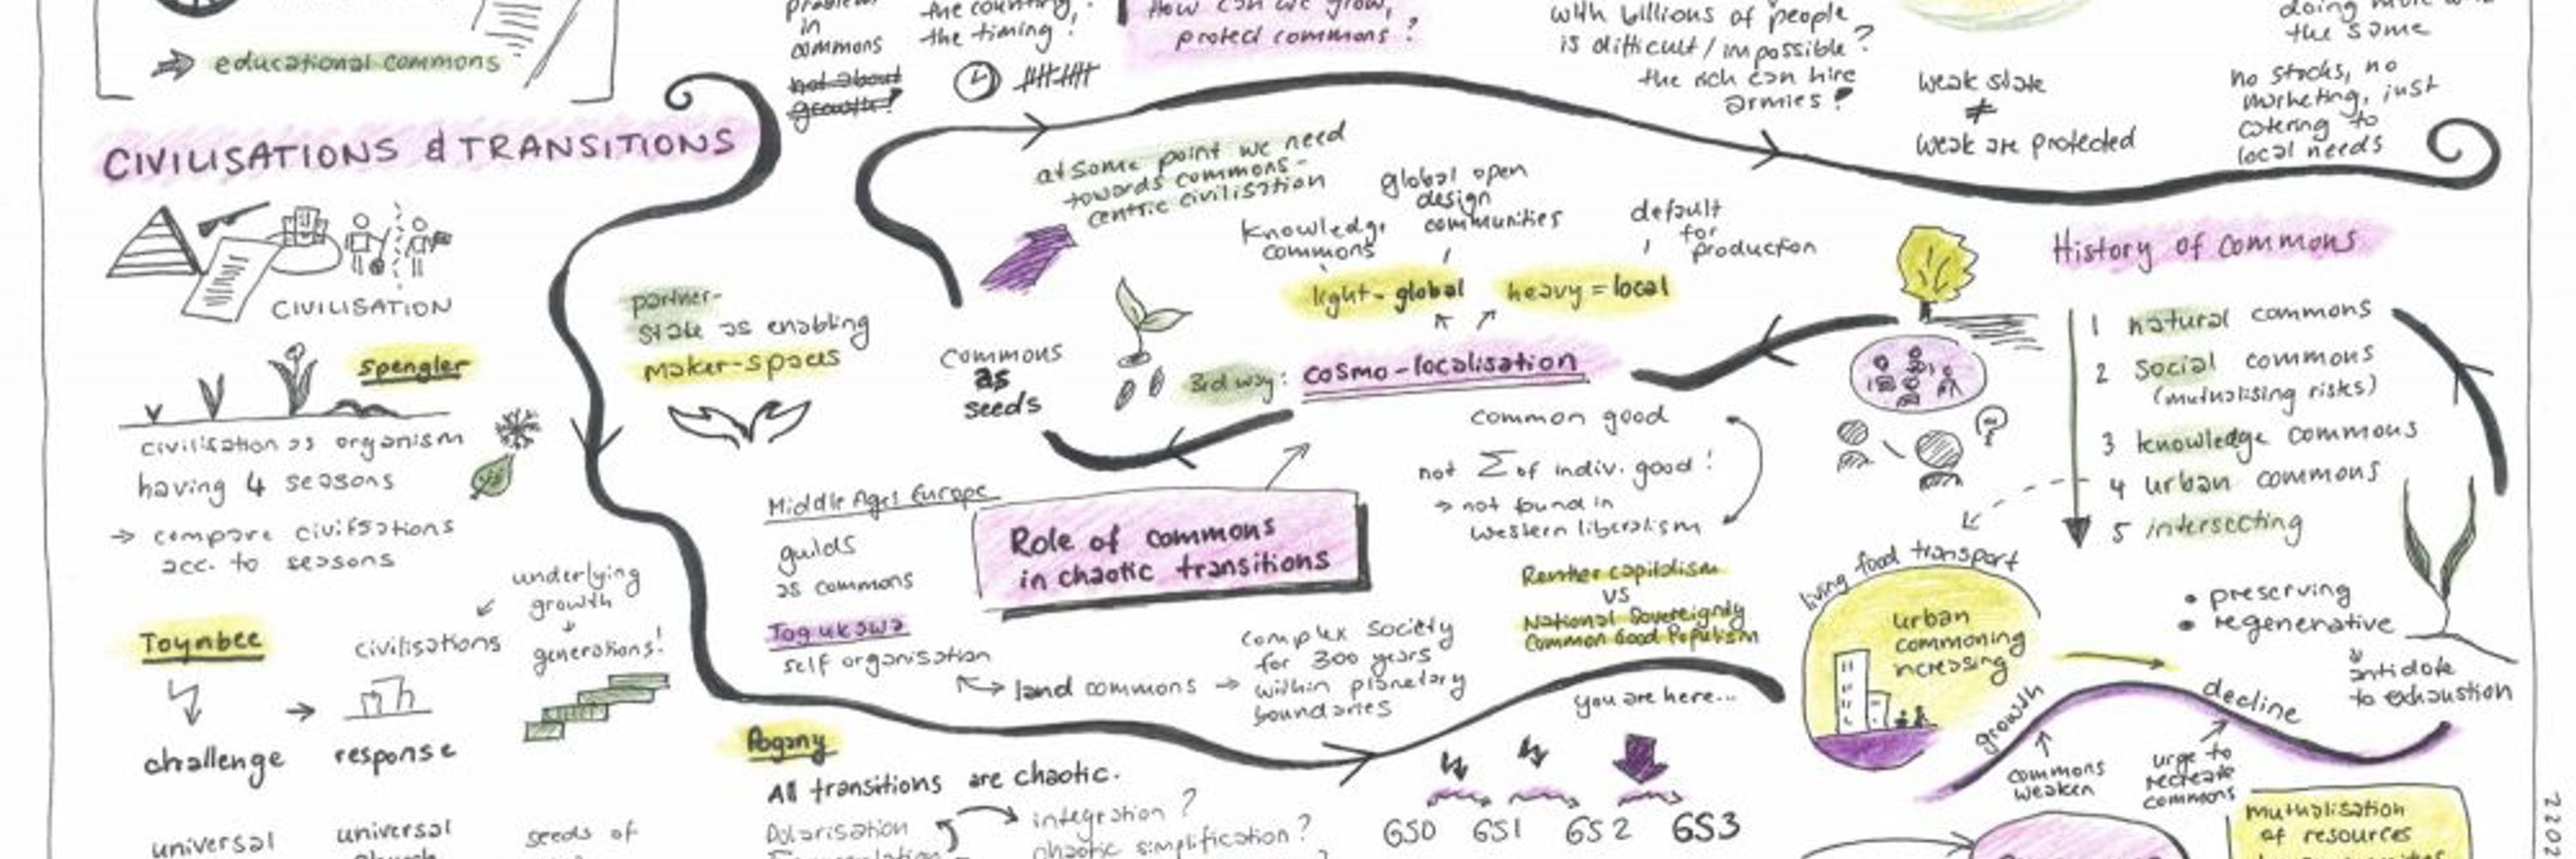 educational commons
in
commons
not about
growth!
the counting,
the timing?
How can we grow,
protect commons?
with billions of people
is difficult / impossible?
the rich can hire
armies?
weak state
≠
weak are protected
the same
no stocks, no
marketing, just
catering to
local needs
CIVILISATIONS & TRANSITIONS
CIVILISATION
Spengler
civilisation as organism
having 4 seasons
→ compare civilisations
acc. to seasons
Toynbee
challenge
→
response
civilisations
underlying
growth
generations!
universal
universal
seeds of
partner-
state as enabling
maker-spaces
commons
as
seeds
at some point we need
towards commons-
centric civilisation
knowledge
commons
global open
design
communities
default
for
production
light - global
heavy = local
3rd way: cosmo-localisation
common good
not Σ of indiv. good!
→ not found in
western liberalism
Middle Ages Europe
guilds
as commons
Togukawa
self organisation
land commons →
complex society
for 300 years
within planetary
boundaries
Role of commons
in chaotic transitions
Rentier capitalism
vs
National Sovereignty
Common Good Populism
you are here...
Pogany
All transitions are chaotic.
Polarisation
integration?
chaotic simplification?
GS0 GS1 GS2 GS3
History of commons
1 natural commons
2 social commons
(mutualising risks)
3 knowledge commons
4 urban commons
5 intersecting
living food transport
urban
commoning
increasing
• preserving
• regenerative
antidote
to exhaustion
growth
decline
commons
weaken
urge to
recreate
commons
mutualisation
of resources
2022